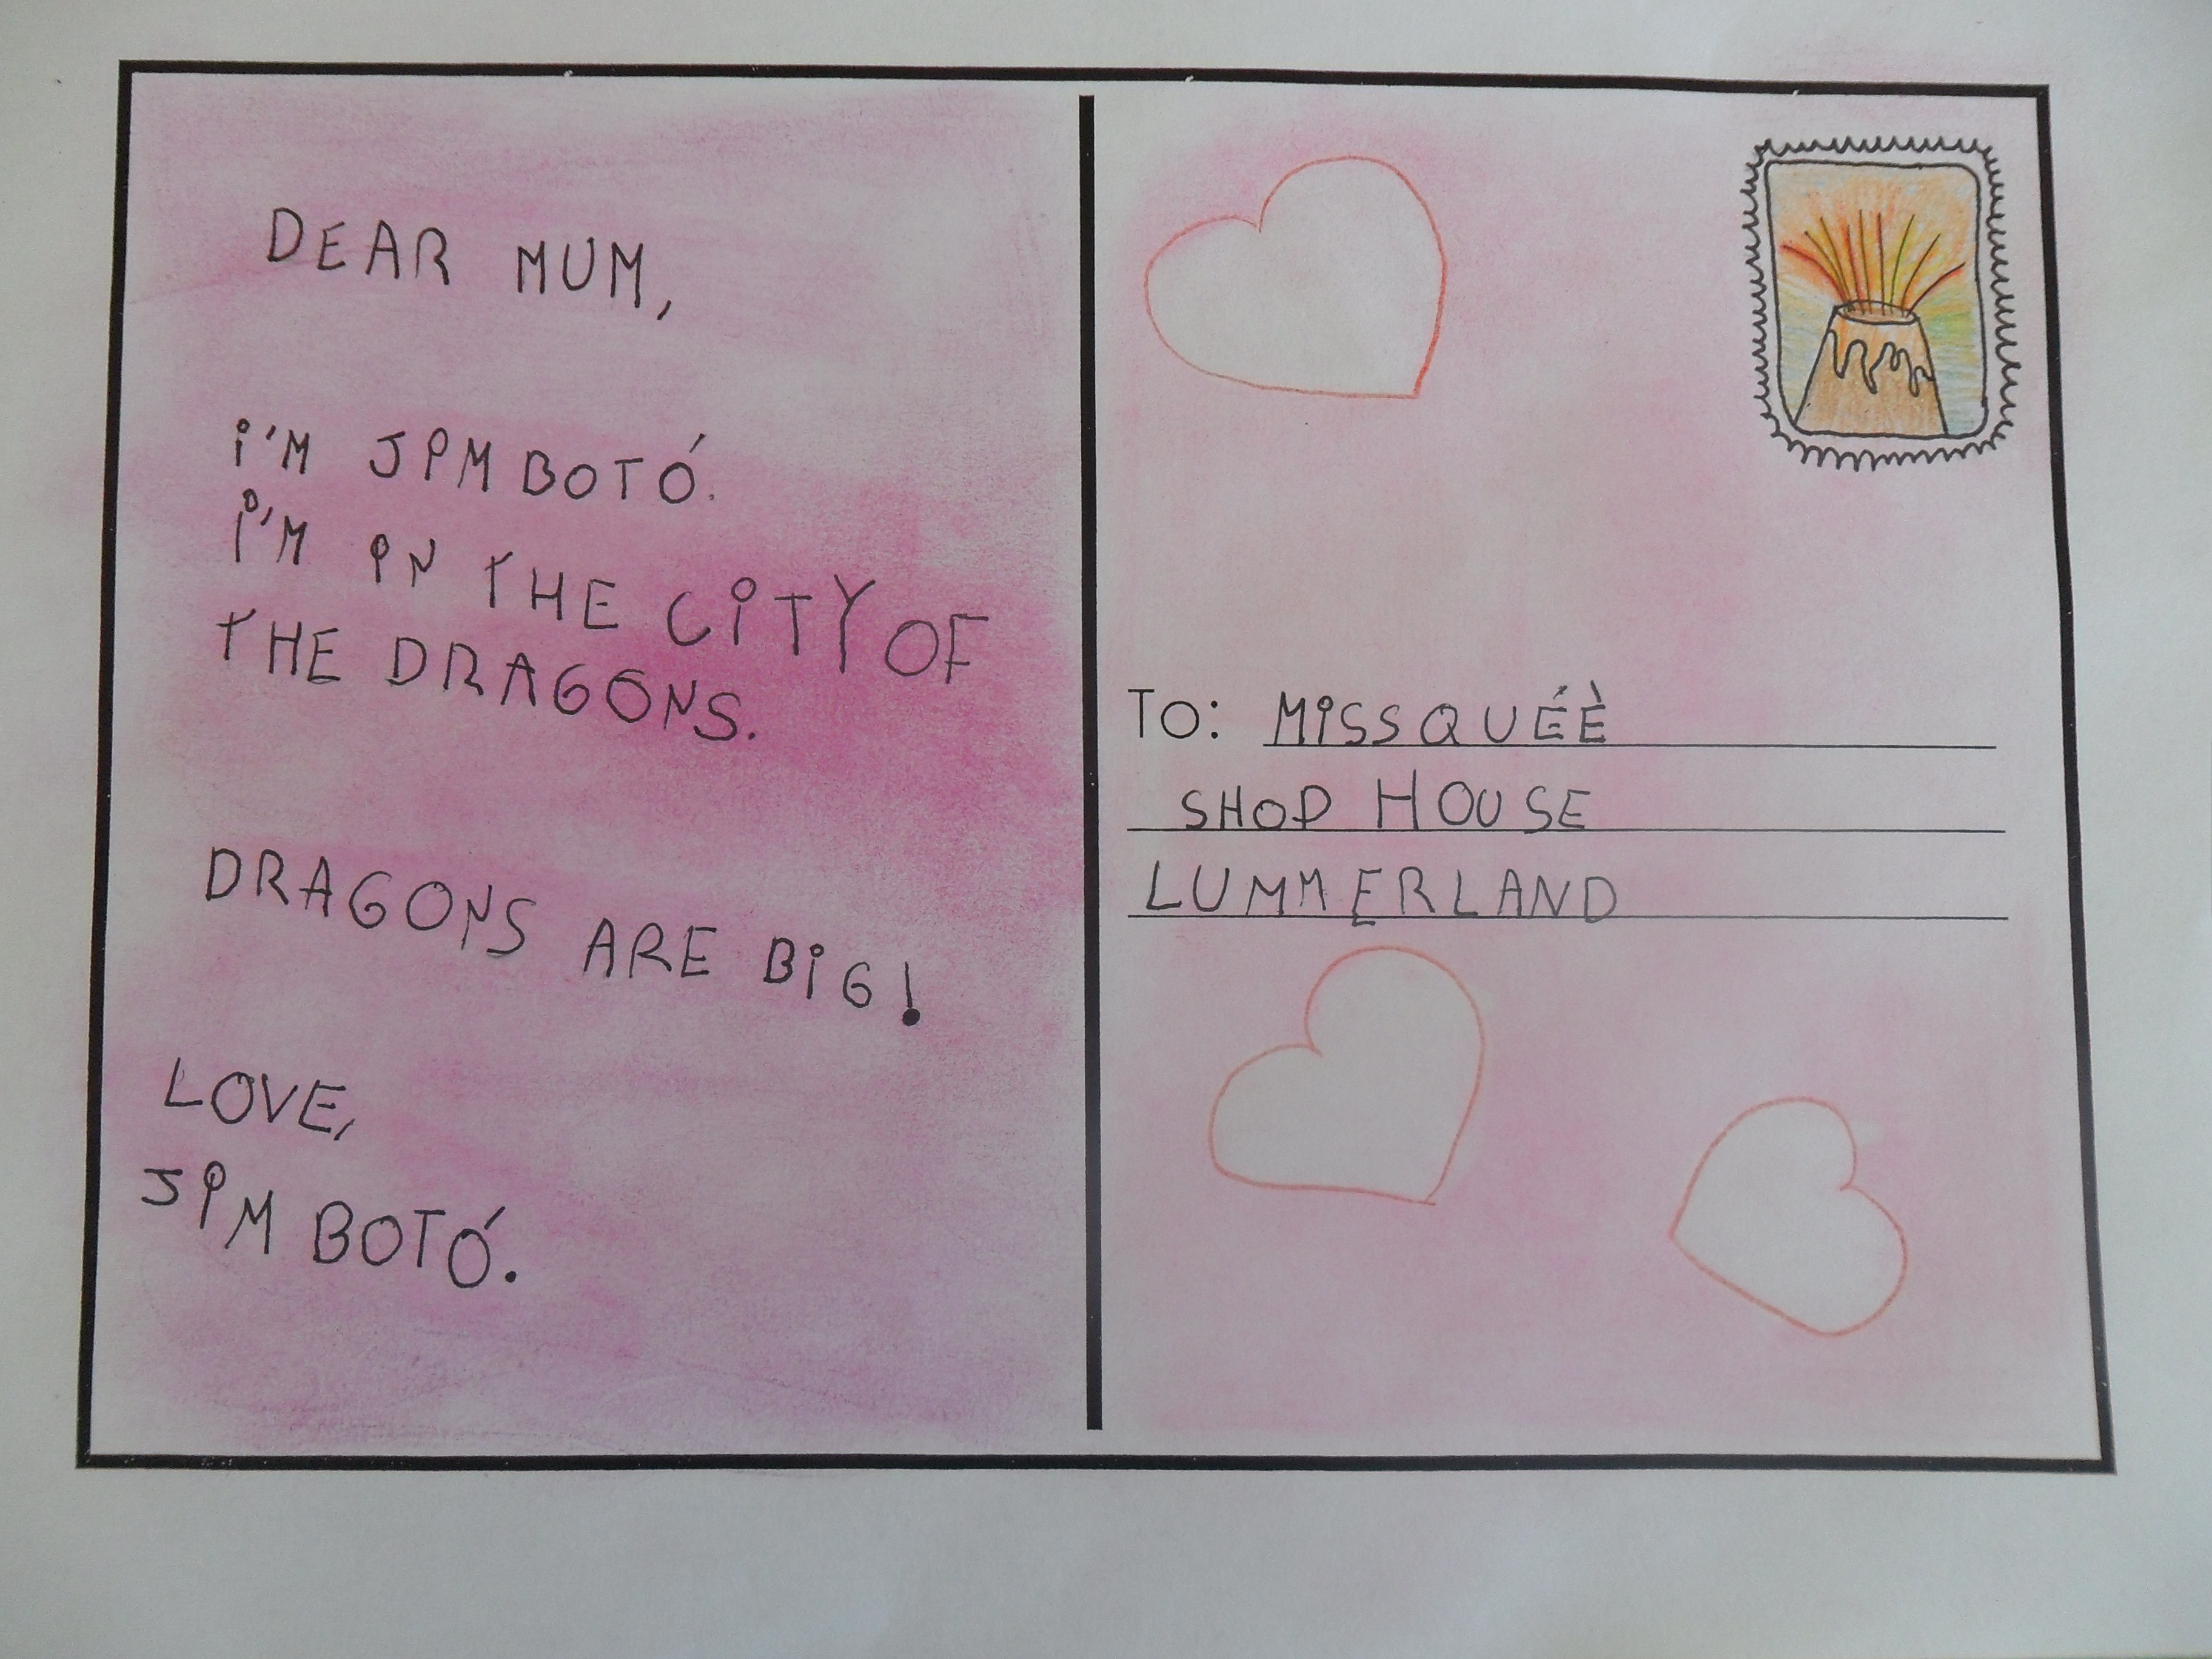 DEAR MUM,
I'M JIM BOTÓ.
I'M IN THE CITY OF
THE DRAGONS.
DRAGONS ARE BIG!
LOVE,
JIM BOTÓ.
TO: MISS QUÉÈ
SHOP HOUSE
LUMMERLAND